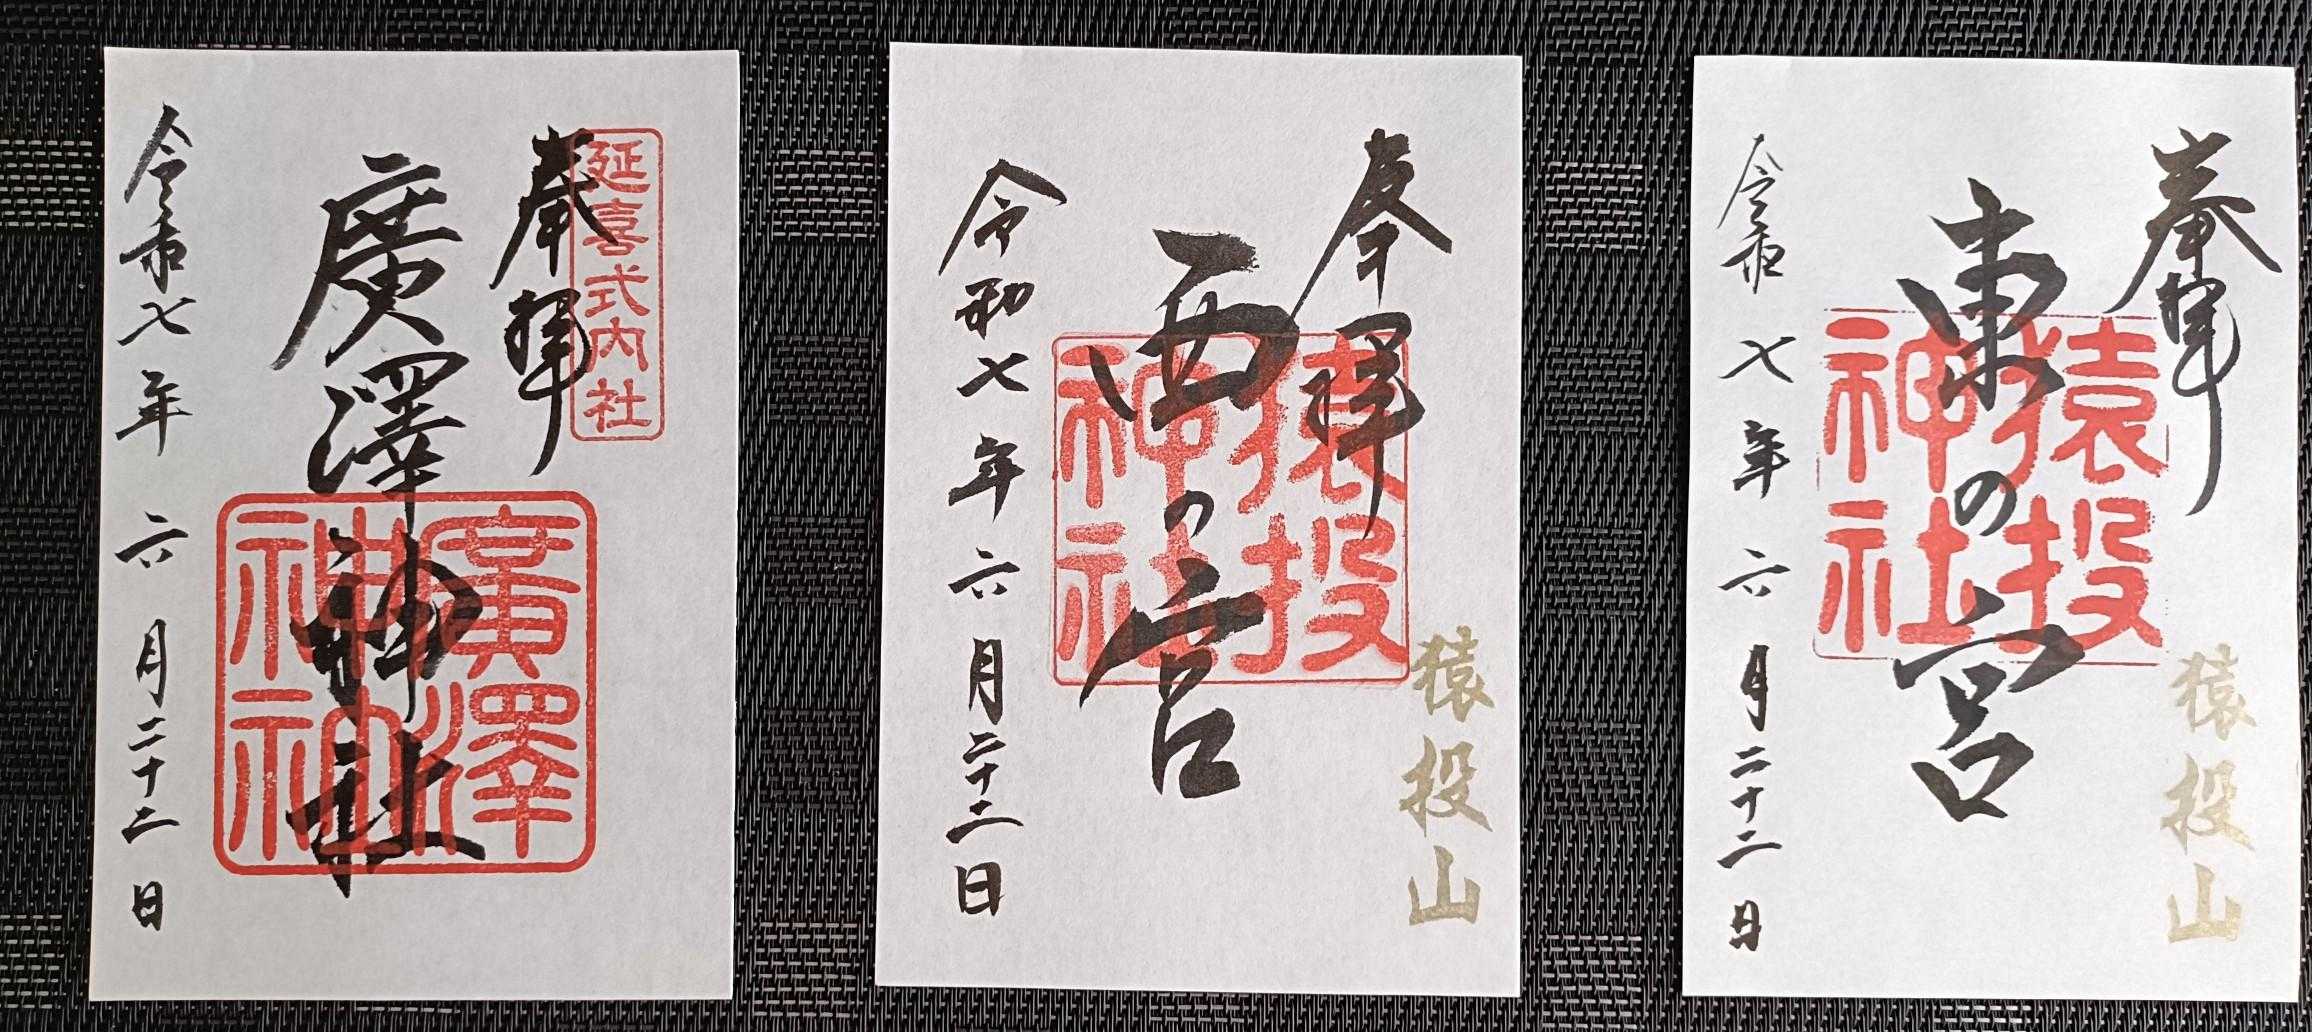 奉拝
延喜式内社
廣澤神社
廣澤
神社
令和七年六月二十二日
奉拝
西の宮
猿投
神社
猿投山
令和七年六月二十二日
奉拝
東の宮
猿投
神社
猿投山
令和七年六月二十二日